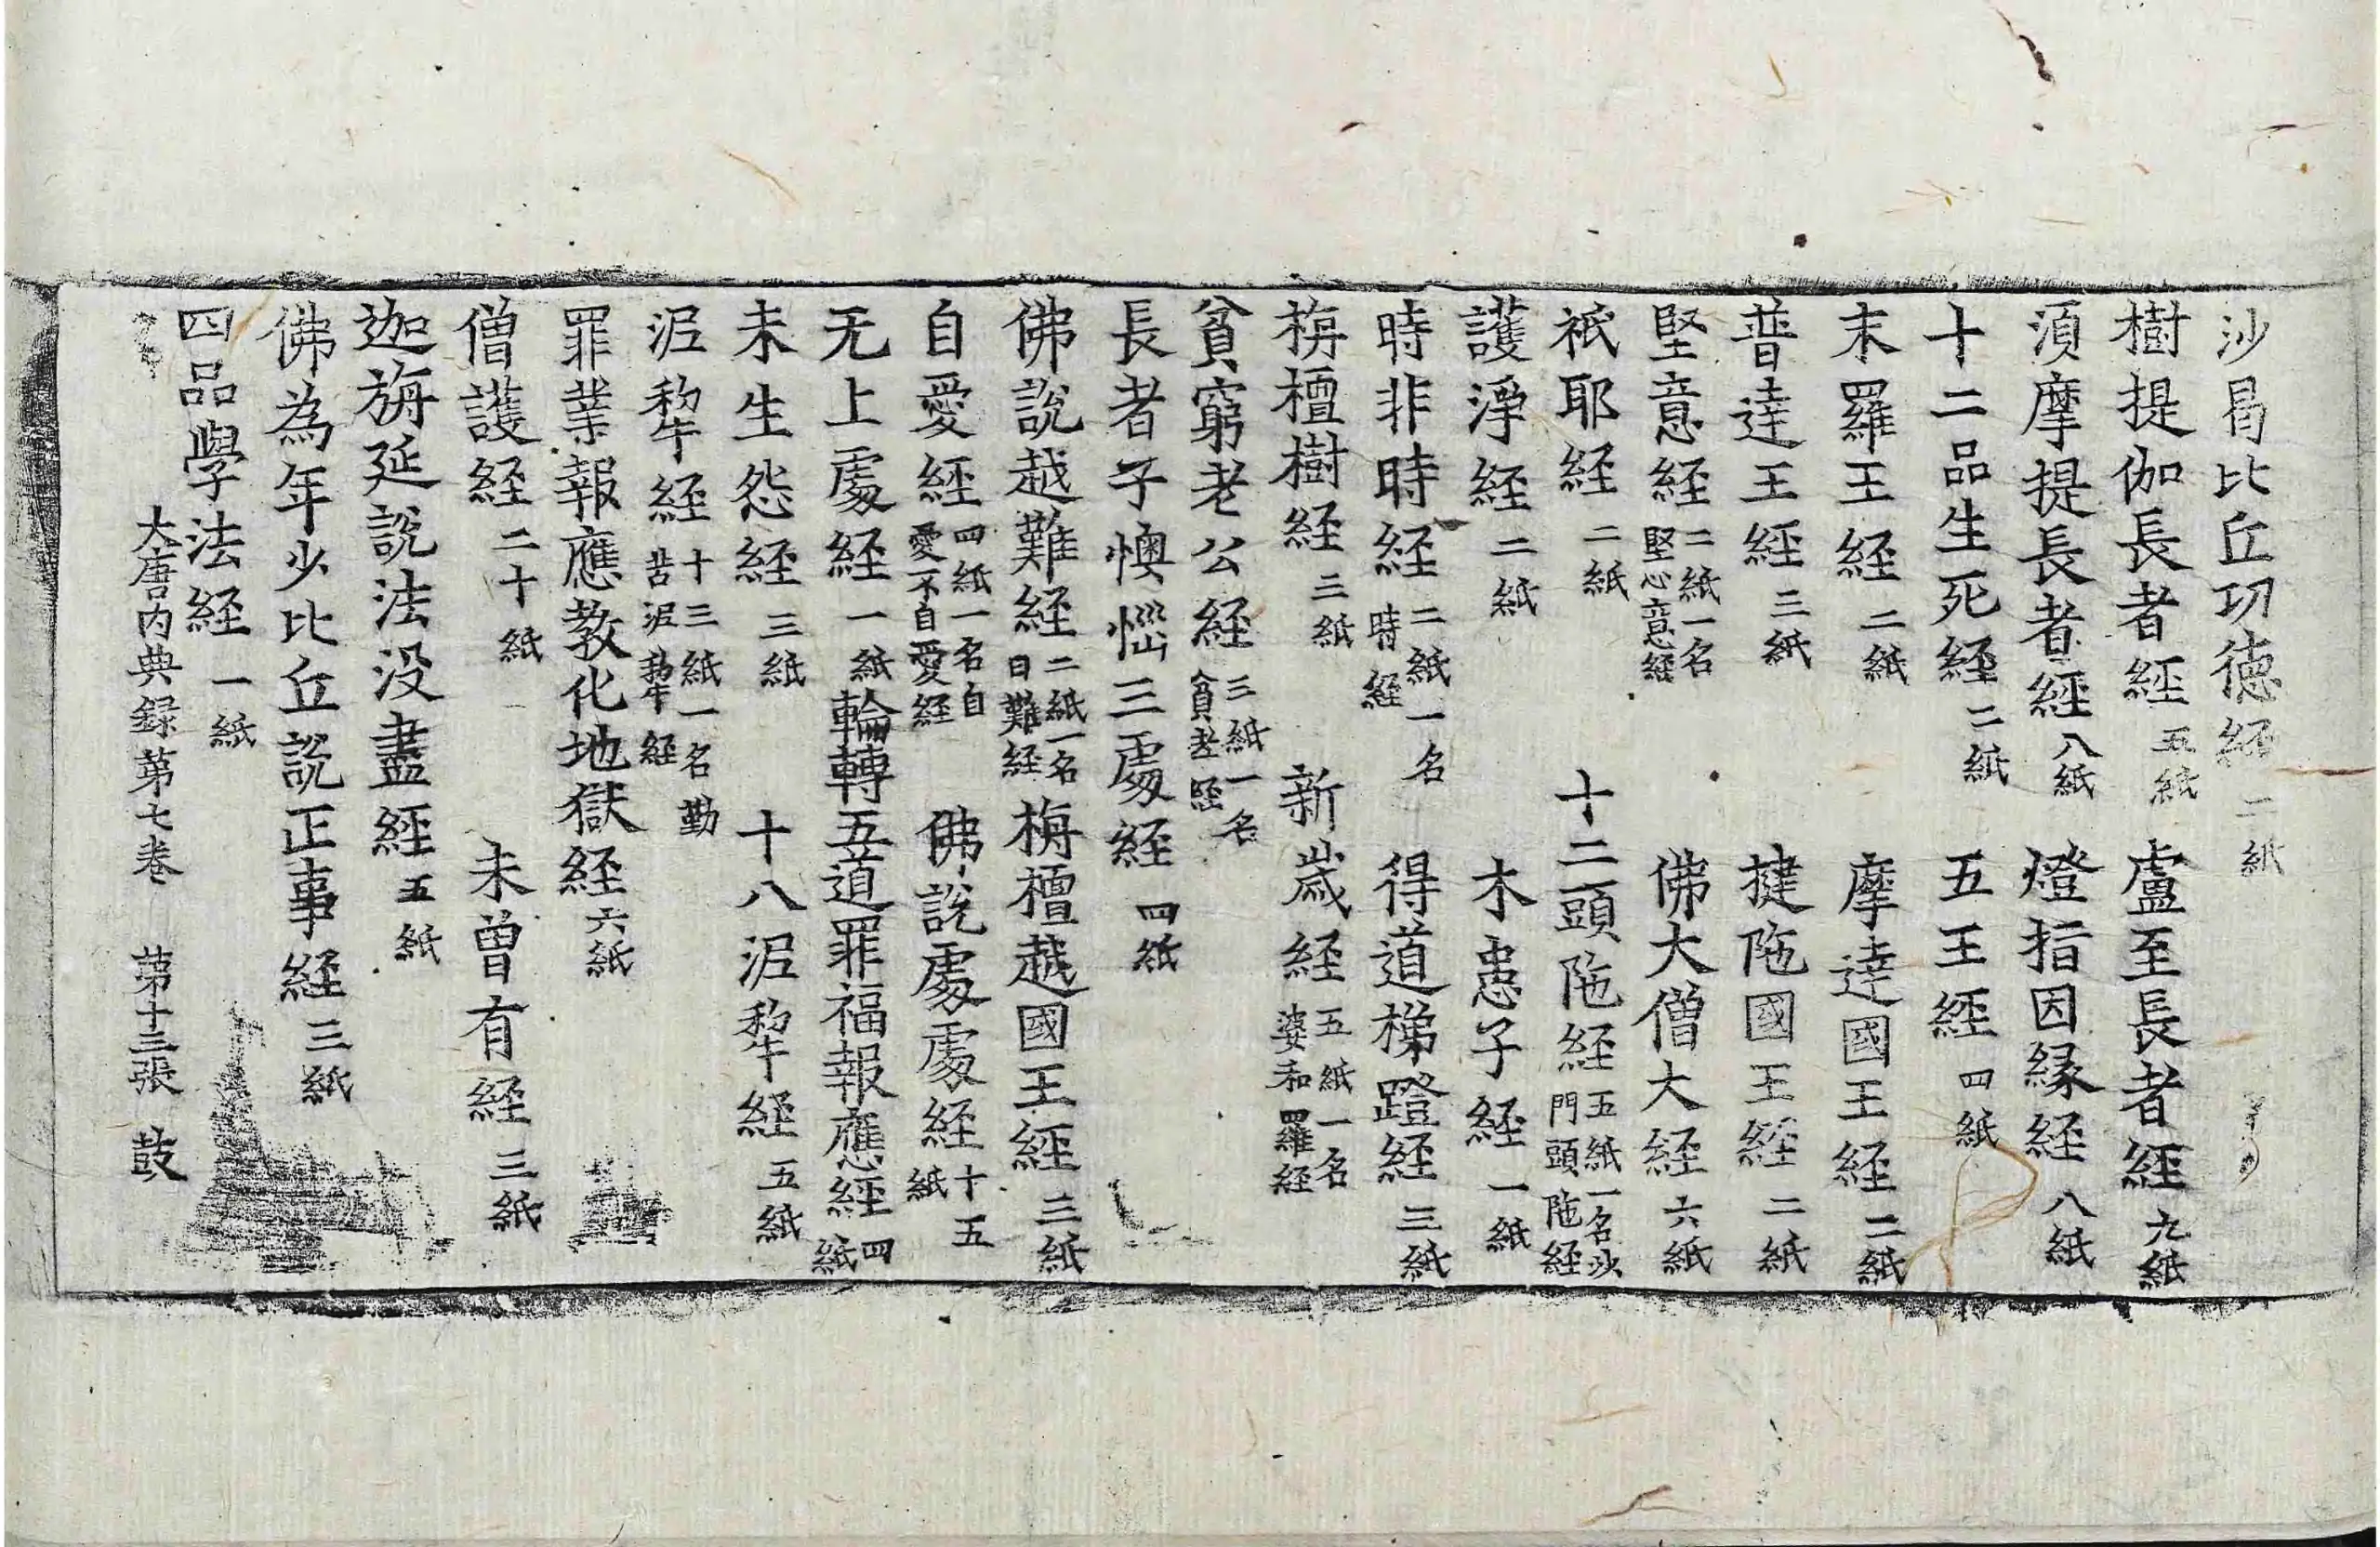 沙曷比丘功徳経 二紙
樹提伽長者経 五紙 盧至長者経 九紙
湏摩提長者経 八紙 燈指因縁経 八紙
十二品生死経 二紙 五王経 四紙
末羅王経 二紙 摩達國王経 二紙
普達王経 三紙 揵陁國王経 二紙
堅意経 二紙一名堅心意経 佛大僧大経 六紙
祇耶経 二紙 十二頭陁経 五紙一名沙門頭陁経
護淨経 二紙 木患子経 一紙
時非時経 二紙一名時経 得道梯蹬経 三紙
栴檀樹経 三紙 新歲経 五紙一名婆和羅経
貧窮老公経 三紙一名貧老経
長者子懊惱三處経 四紙
佛說越難経 二紙一名日難経 栴檀越國王経 三紙
自愛経 四紙一名自愛不自愛経 佛說處處経 十五紙
无上處経 一紙 輪轉五道罪福報應経 四紙
未生怨経 三紙 十八泥犂経 五紙
泥犂経 十三紙一名勤苦泥犂経
罪業報應教化地獄経 六紙
僧護経 二十紙 未曾有経 三紙
迦旃延說法沒盡経 五紙
佛為年少比丘說正事経 三紙
四品學法経 一紙
大唐内典録第七卷 第十三張 鼓